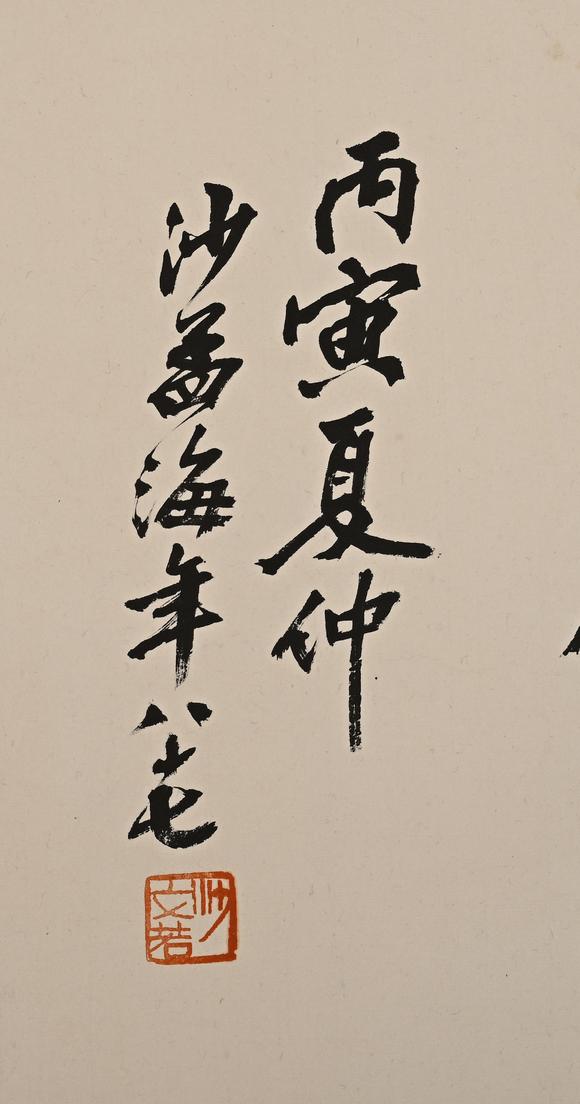 丙寅夏仲
沙孟海年八十七
沙文若